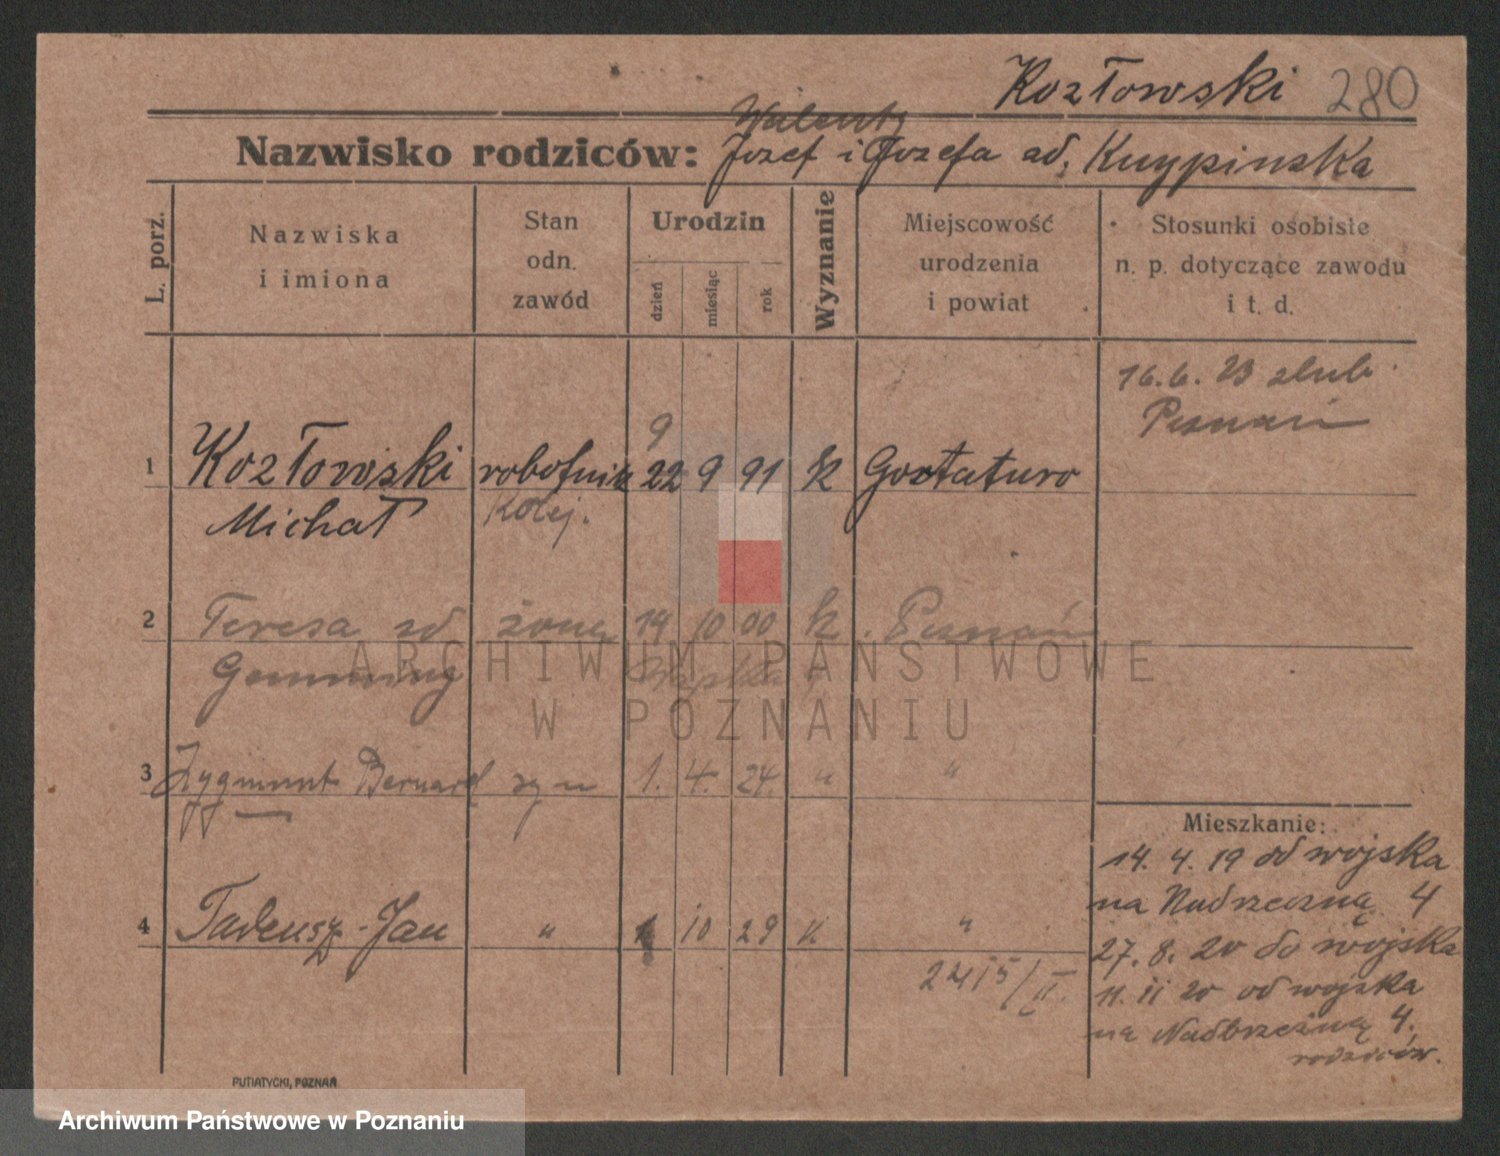 Kozłowski 280
Walenty
Nazwisko rodziców: Józef i Józefa zd.
L. porz.
Nazwiska i imiona
Stan odn. zawód
Urodzin
dzień
miesiąc
rok
Wyznanie
Miejscowość urodzenia i powiat
Stosunki osobiste n. p. dotyczące zawodu i t. d.
16.6.23 ślub
Poznań
9
1 Kozłowski robotnik 22 9 91 k
Michał Kolej.
2 Teresa zd żona 14 10 00 k. Poznań
3 Zygmunt Bernard syn 1. 4. 24. " "
4 Tadeusz-Jan " 10 29 "
2215/II.
Mieszkanie:
14. 4. 19 od wojska
na Nadrzeczną 4
27. 8. 20 do wojska
11. 11 20 od wojska
na 4.
rodziców.
PUTIATYCKI, POZNAŃ
ARCHIWUM PAŃSTWOWE
W POZNANIU
Archiwum Państwowe w Poznaniu